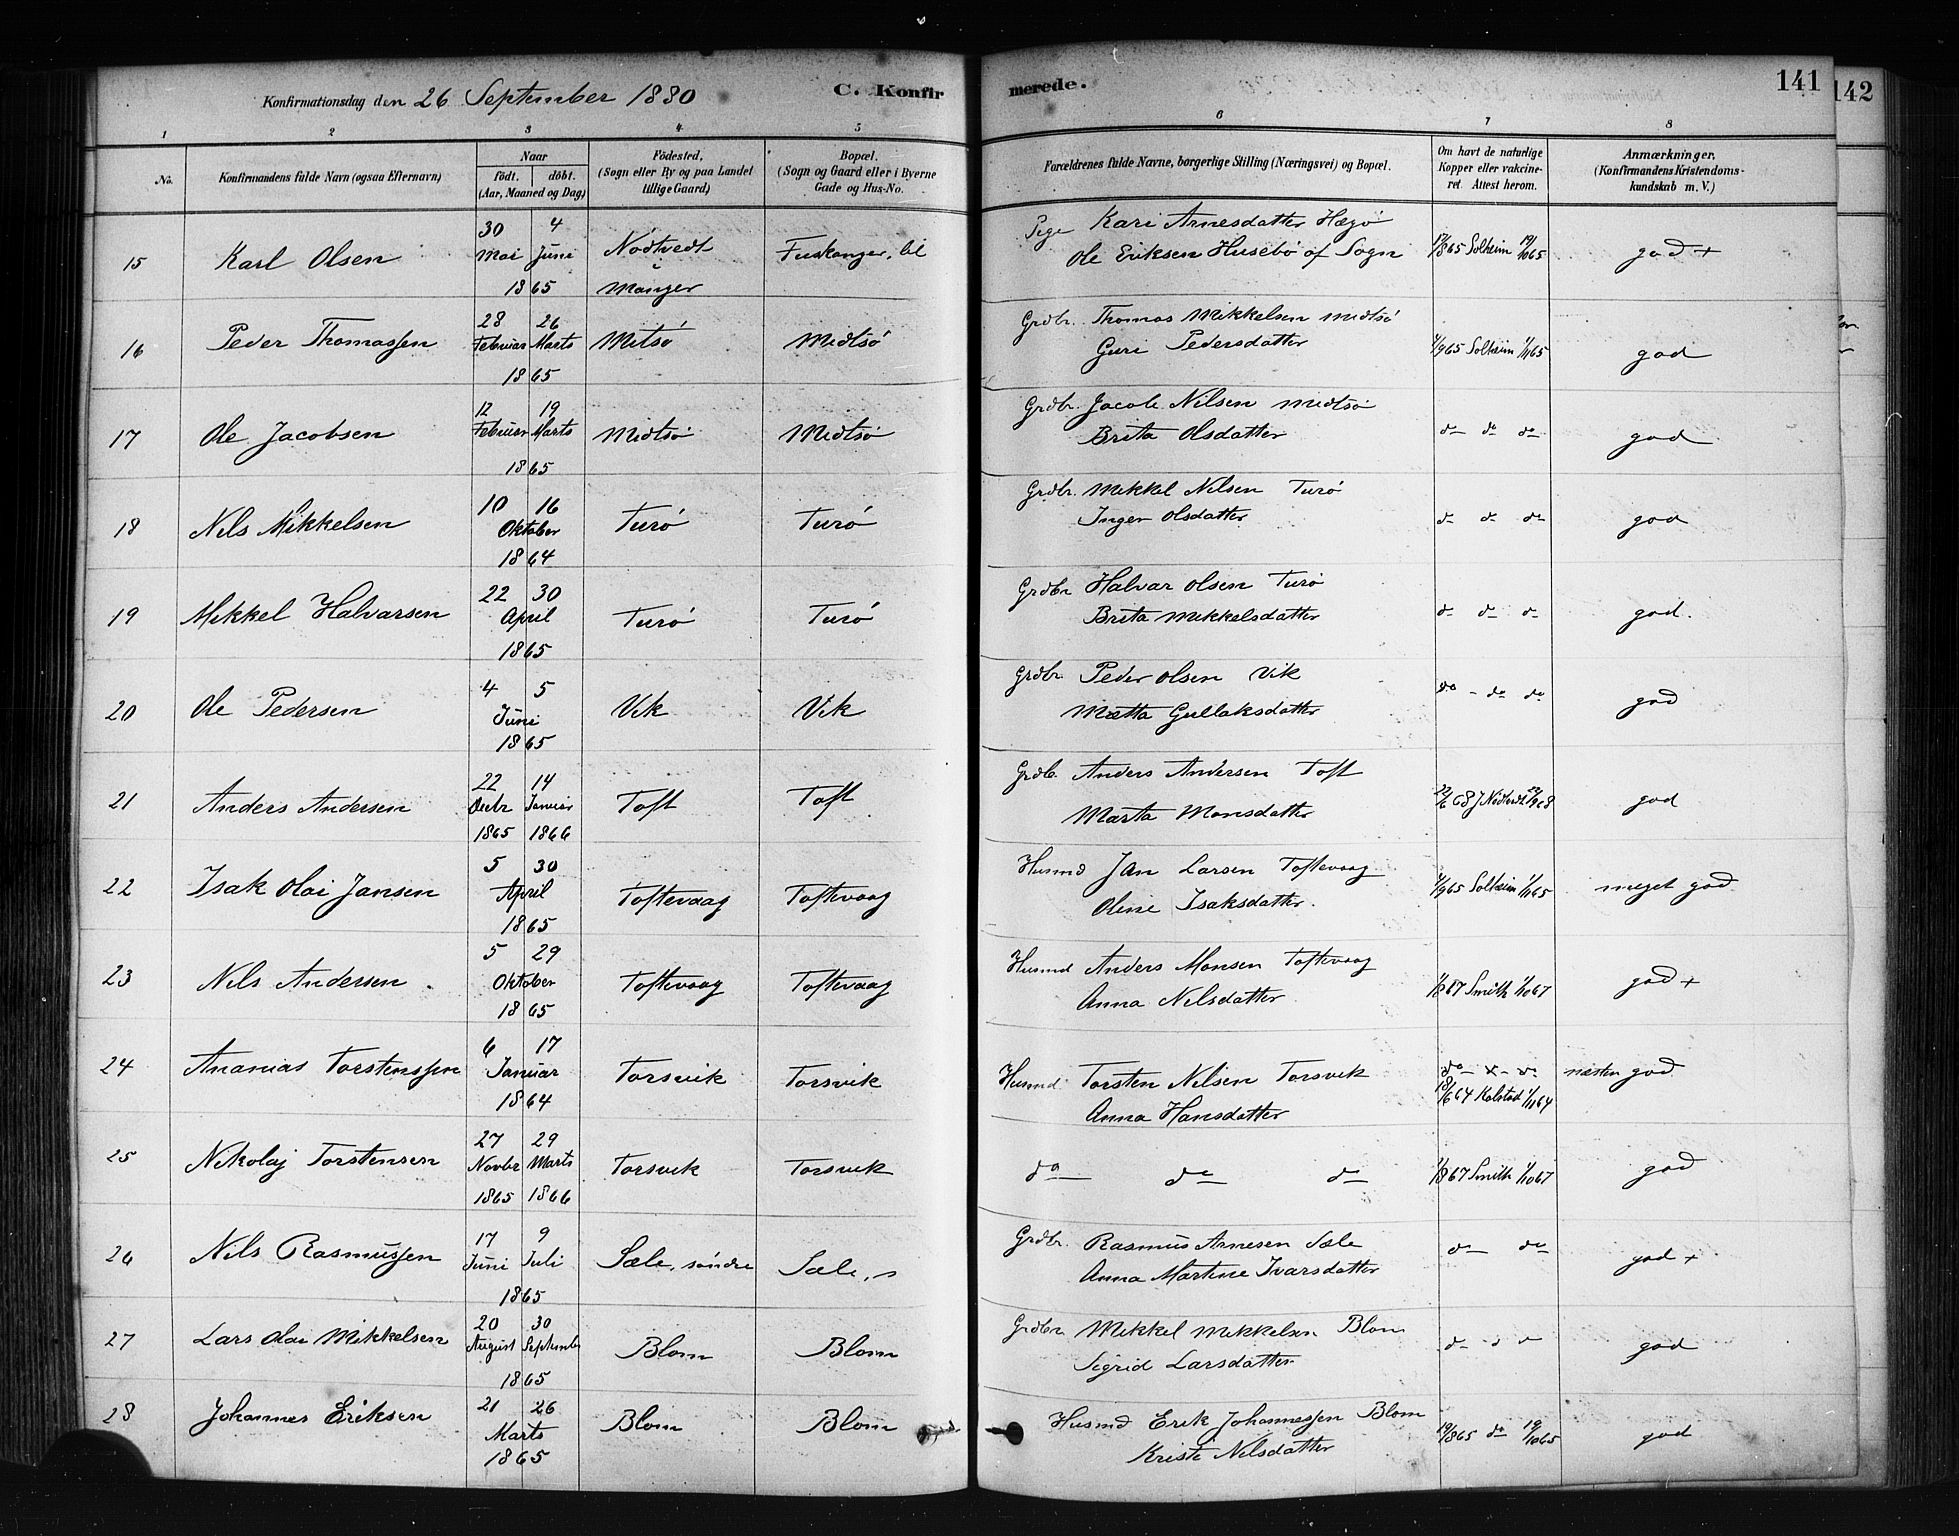 Konfirmationsdag den 26 September 1880
C. Konfir
merede.
141
142
1 2 3 4 5 6 7 8
No.
Konfirmandens fulde Navn (ogsaa Efternavn)
Naar
födt. döbt.
(Aar, Maaned og Dag)
Födested,
(Sogn eller By og paa Landet
tillige Gaard)
Bopæl.
(Sogn og Gaard eller i Byerne
Gade og Hus-No.
Forældrenes fulde Navne, borgerlige Stilling (Næringsvei) og Bopæl.
Om havt de naturlige
Kopper eller vakcine-
ret. Attest herom.
Anmærkninger.
(Konfirmandens Kristendoms-
kundskab m. V.)
30 4
15 Karl Olsen Mai Juni Nodtvedt Fuskanger, lil
1865 Manger
Pige Kari Arnesdatter Hægö
Ole Eriksen Husebö af Sogn 17/865 Solheim 19/1065 god +
28 26
16 Peder Thomassen Februar Marts Mitsö Midtsö
1865
Grdbr. Thomas Mikkelsen Midtsö
Guri Pedersdatter 1/965 Solheim 1/1165 god
12 19
17 Ole Jacobsen Februar Marts Midtsö Midtsö
1865
Grdbr. Jacob Nilsen Midtsö
Brita Olsdatter do do do god
10 16
18 Nils Mikkelsen Oktober Turö Turö
1864
Grdbr. Mikkel Nilsen Turö
Inger Olsdatter do do do god
22 30
19 Mikkel Halvarsen April Turö Turö
1865
Grdbr Halvar Olsen Turö
Brita Mikkelsdatter do do do god.
4 5
20 Ole Pedersen Juni Vik Vik
1865
Grdbr Peder Olsen Vik
Mætta Gullaksdatter do - do do god
22 14
21 Anders Andersen Decbr Januar Toft Toft
1865 1866
Grdb. Anders Andersen Toft
Marta Monsdatter god
5 30
22 Isak Olai Jansen April Toftevaag Toftevaag
1865
Husmd Jan Larsen Toftevaag
Oline Isaksdatter. 1/965 Solheim 1/1065 meget god
5 29
23 Nils Andersen Oktober Toftevaag Toftevaag
1865
Husmd Anders Monsen Toftevaag
Anna Nilsdatter 1/867 Smith 1/1067 god +
6 17
24 Ananias Torstenssen Januar Torsvik Torsvik
1864
Husmd Torsten Nilsen Torsvik do - x - do næsten god
Anna Hansdatter 18/664 Kolstad 1/1164
27 29
25 Nikolaj Torstensen Novbr Marts Torsvik Torsvik
1865 1866
do do do 1/867 Smith 1/1067 god
17 9
26 Nils Rasmussen Juni Juli Sæle, söndre Sæle, s
1865
Grdbr. Rasmus Arnesen Sæle
Anna Martine Ivarsdatter do do god +
20 30
27 Lars Olai Mikkelsen August September Blom Blom
1865
Grdbr Mikkel Mikkelsen Blom
Sigrid Larsdatter do do do god
21 26
28 Johannes Eriksen Marts Blom Blom
1865
Husmd Erik Johannessen Blom
Kristi Nilsdatter 19/865 do 19/1065 god